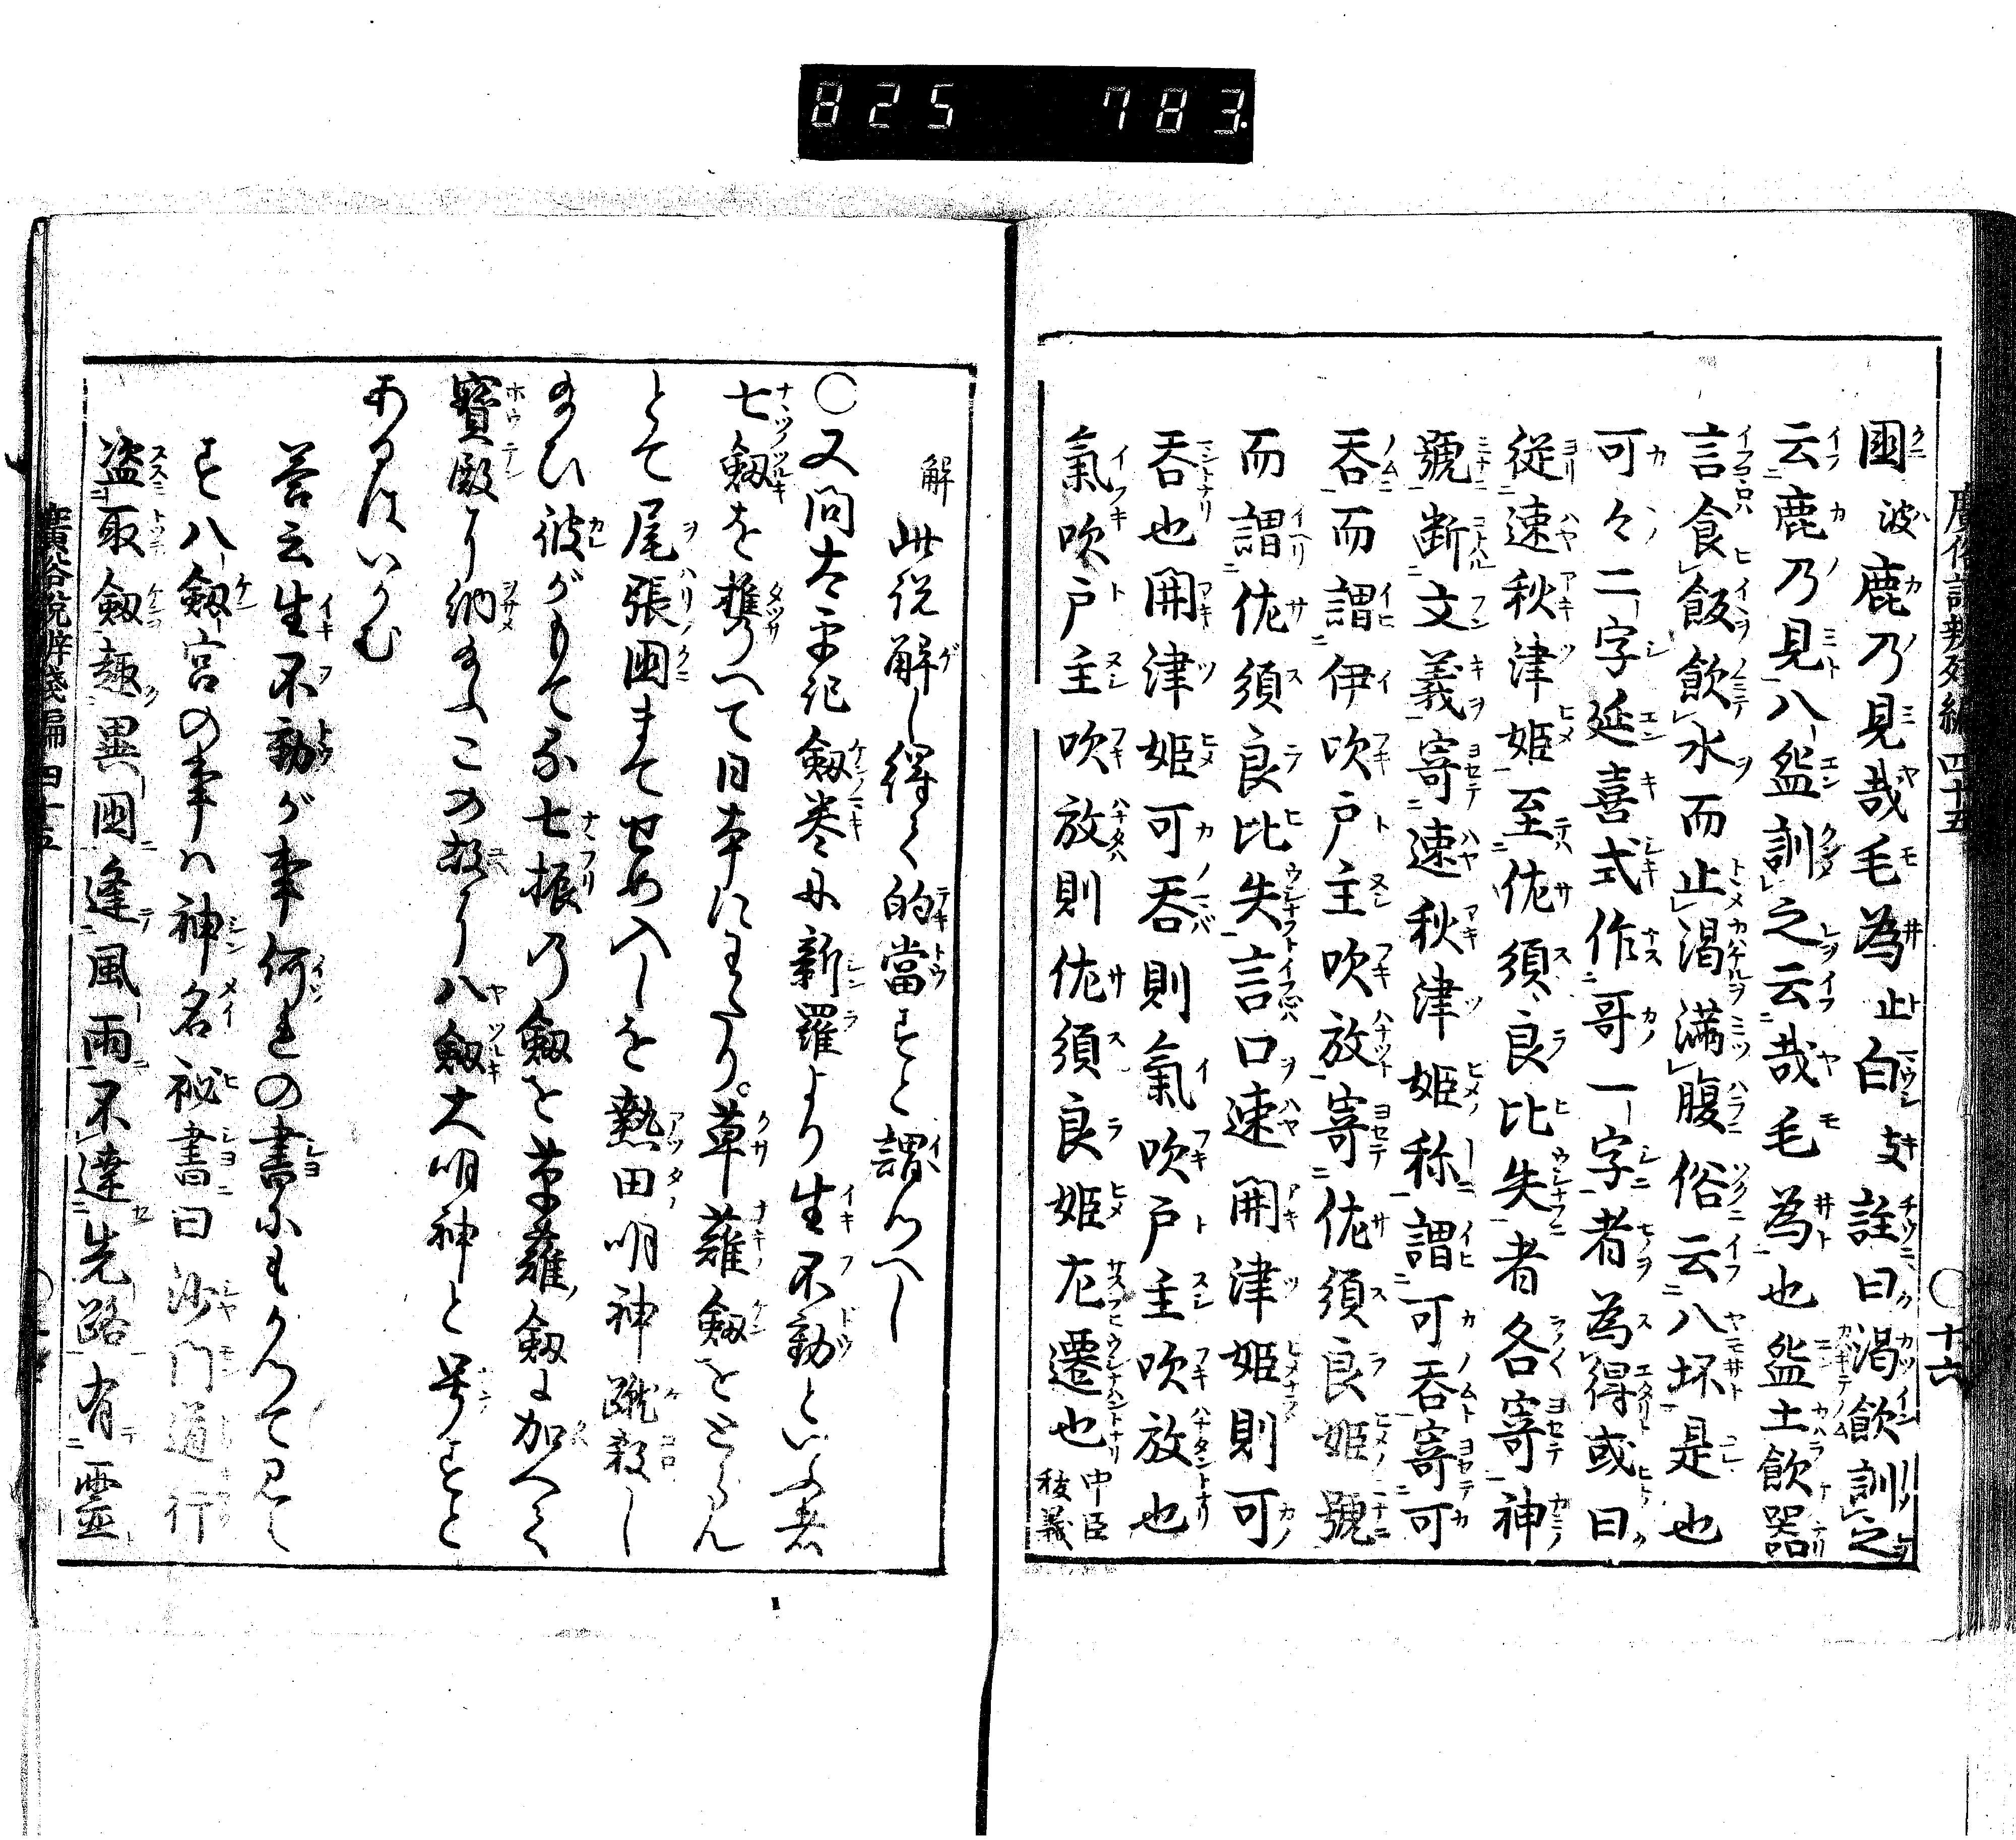 825 783.
廣俗説 残編 四十五 ○十六
國波鹿乃見哉毛為止白支註曰渇飲訓之
云鹿乃見八盌訓之云哉毛為也盌土飲器
言食飯飲水而止渇満腹俗云八坏是也
可々二字延喜式作哥一字者為得或曰
従速秋津姫至佐須良比失者各寄神
號断文義寄速秋津姫称謂可呑寄可
呑而謂伊吹戸主吹放寄佐須良姫號
而謂佐須良比失言口速開津姫則可
呑也開津姫可呑則氣吹戸主吹放也
氣吹戸主吹放則佐須良姫左遷也 中臣秡義
解 此説解し得て的當すと謂つへし
○又問太平記劔巻に新羅より生不動といふ者
七劔を携へて日本にきたり。草薙劔をとらん
とて尾張国まてせめ入しを熱田明神蹴殺し
給ひ彼がもてる七振の劔を草薙劔に加へて
寳殿に納給ふこの故に八劔大明神と号すと
あるはいかむ
答云生不動が事何れの書にもかつて見へ
す八劔宮の事ハ神名秘書曰沙門道行
盗取劔趣異國逢風雨不達先路有霊
廣俗説辨残編 四十五